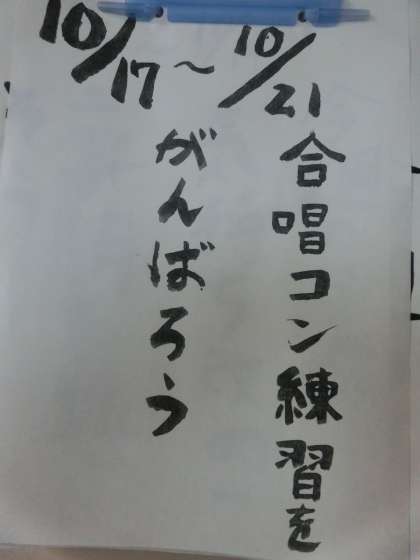 10/17〜10/21
合唱コン練習を
がんばろう